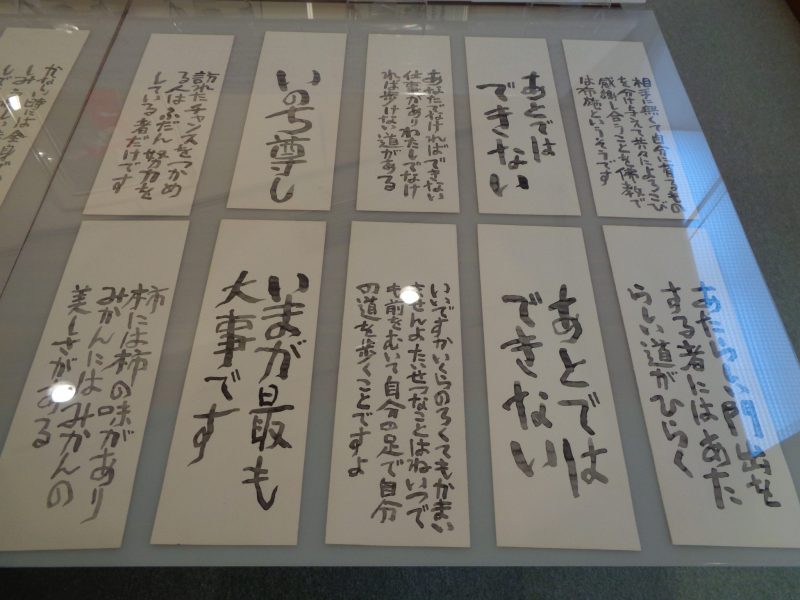 相手に無くて自分に有るもの
を分け与えて共々によろこび
感謝し合うことを佛教で
は布施というそうです
あとでは
できない
あなたでなければできない
仕事がありわたしでなけ
れば歩けない道がある
いのち尊し
訪れたチャンスをつかめ
る人はふだん努力を
している者だけです
かなしい時には全身で
あたらしい門出を
する者にはあた
らしい道がひらく
あとでは
できない
いいですかいくらのろくてもかまい
ませんよたいせつなことはねいつで
も前をむいて自分の足で自分
の道を歩くことですよ
いまが最も
大事です
柿には柿の味があり
みかんにはみかんの
美しさがある